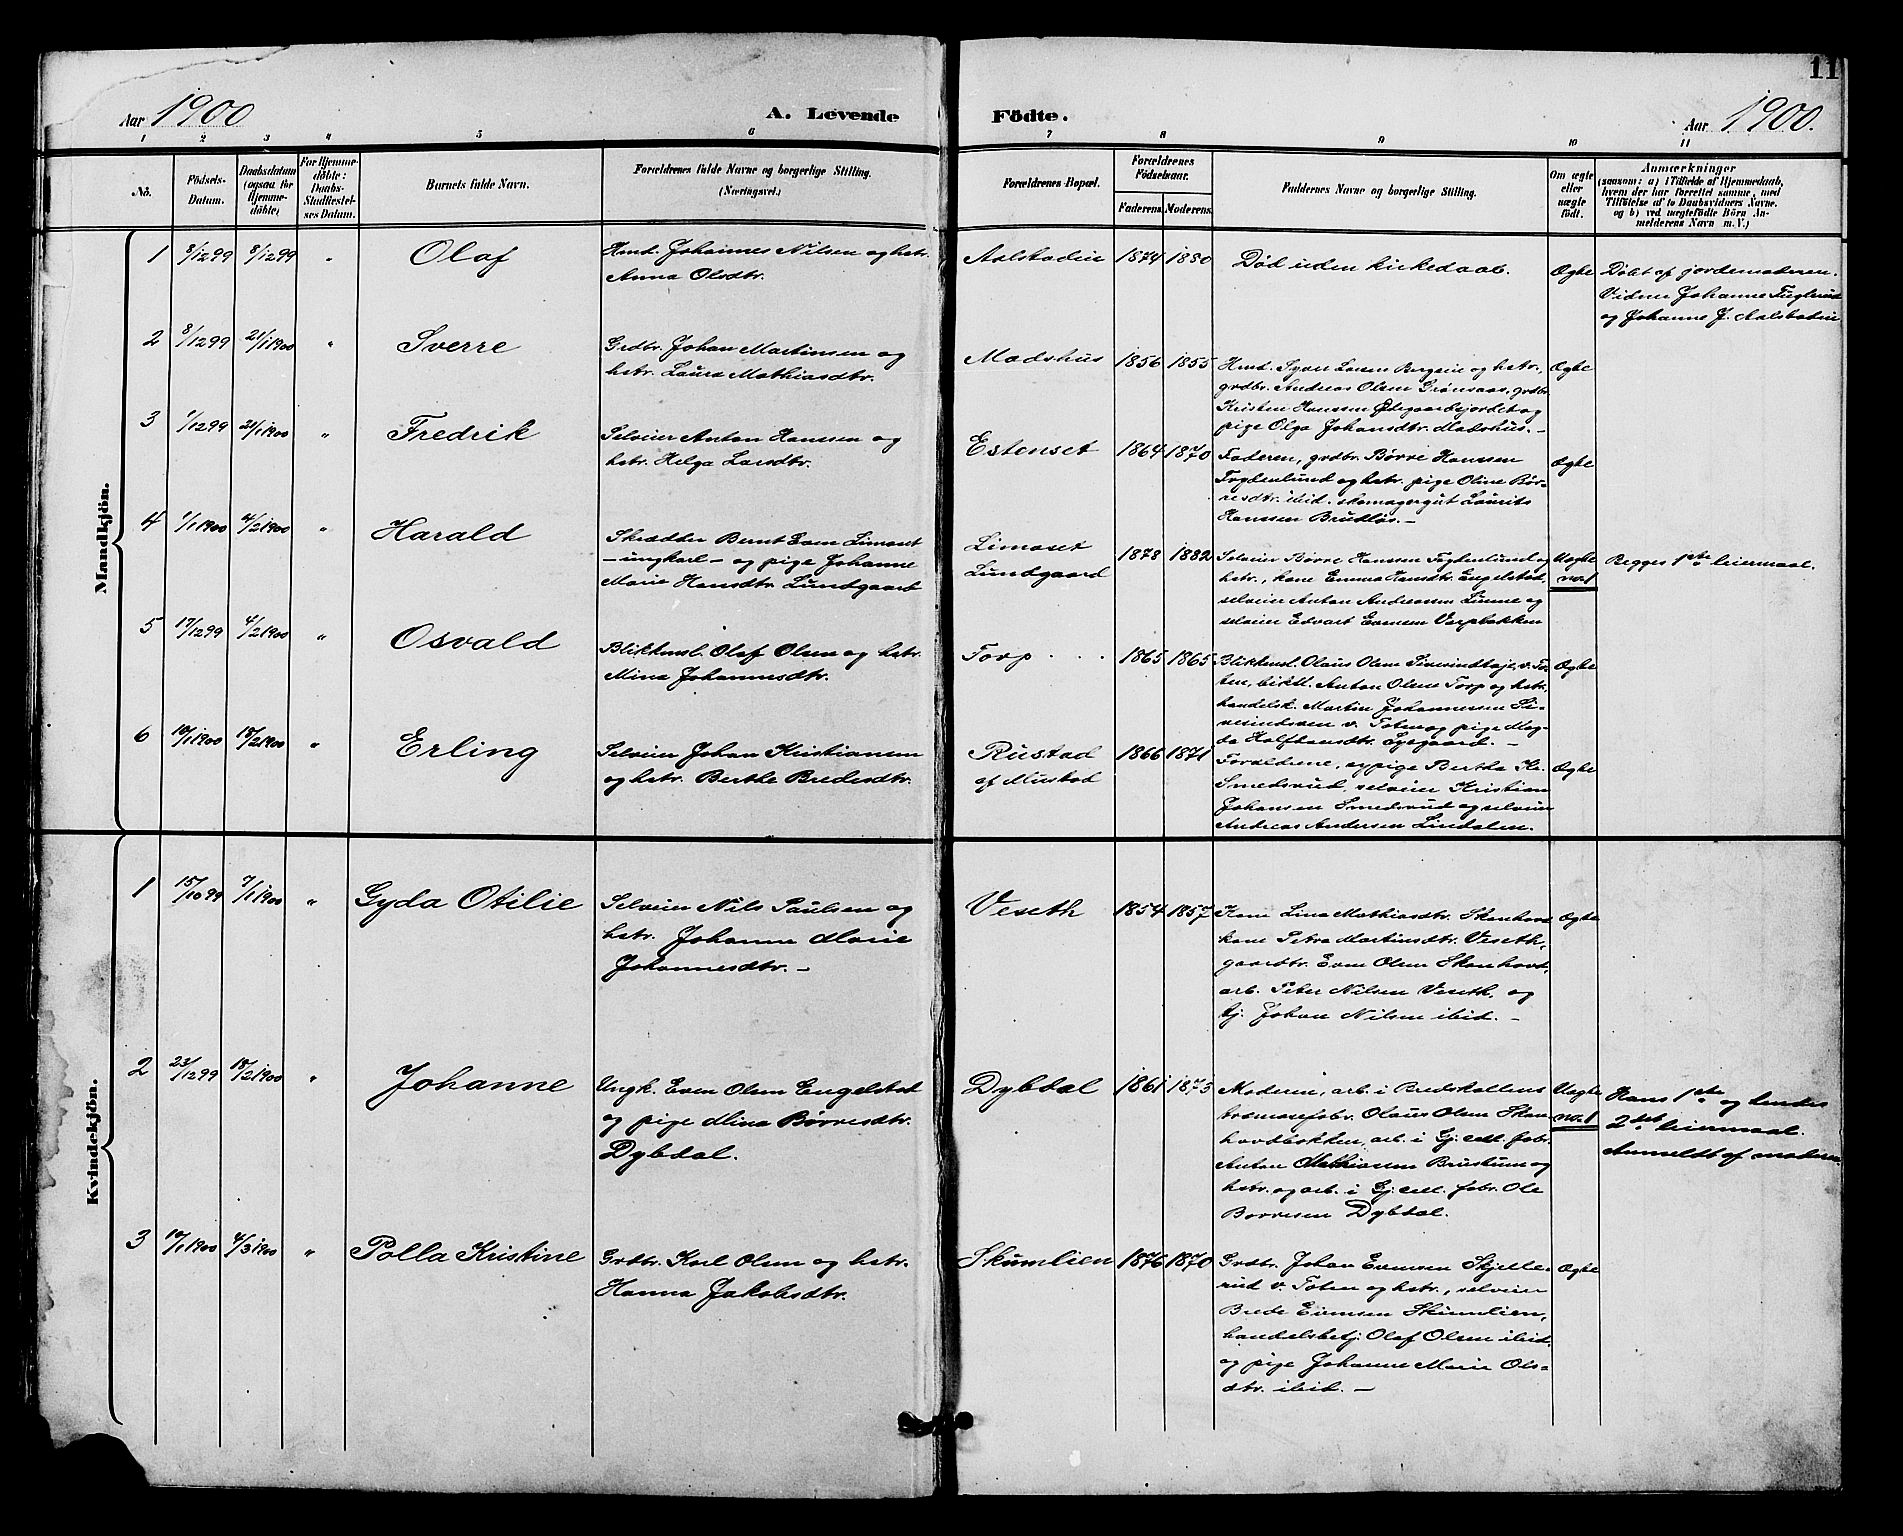 11
Aar 1900 A. Levende Födte. Aar 1900.
1 2 3 4 5 6 7 8 9 10 11
No. Födsels-Datum. Daabsdatum (ogsaa for Hjemmedöbte) For Hjemmedöbte: Daabs-Stadfæstelses Datum. Barnets fulde Navn. Forældrenes fulde Navne og borgerlige Stilling. (Næringsvei.) Forældrenes Bopæl. Forældrenes Födselsaar. Faderens. Moderens. Faddernes Navne og borgerlige Stilling. Om ægte eller uægte födt. Anmærkninger (saasom: a) i Tilfælde af Hjemmedaab, hvem der har forrettet samme, med Tilföielse af to Daabsvidners Navne, og b) ved uægtefödte Börn Anmelderens Navn m. V.)
Mandkjön.
1 8/12 99 8/12 99 " Olaf
Hmd. Johannes Nilsen og hstr.
Anna Olsdtr.
Aalstadeie 1874 1880
Död uden kirkedaab.
Ægte
Döbt af jordemoderen.
Vidner Johanne Fuglerud
og Johanne J. Aalstadeie
2 8/12 99 21/1 1900 " Sverre
Grdbr. Johan Martinsen og
hstr. Laura Mathiasdtr.
Madshus 1856 1855
Hmd. Syver Larsen Bergseie og hstr.,
grdbr. Andreas Olsen Grönaas, grdbr.
Kristen Hanssen Ødegaardsjordet og
pige Olga Johansdtr. Madshus. –
Ægte
3 1/12 99 21/1 1900 " Fredrik
Selveier Anton Hanssen og
hstr. Helga Larsdtr.
Estenset 1864 1870
Faderen, grdbr. Børre Hanssen
Frydenlund og hstr. pige Oline Bör-
resdtr. ibid. skomagergut Laurits
Hanssen Brudlös. –
Ægte
4 1/1 1900 4/2 1900 " Harald
Skrædder Bernt Even Limoset
– ungkarl – og pige Johanne
Marie Hansdtr. Lundgaard
Limoset
Lundgaard 1878 1882
Selveier Børre Hanssen Frydenlund og
hstr., kone Emma Hansdtr. Engelstad,
selveier Anton Andreassen Linne og
selveier Edvart Evensen Verpbakken
Uægte
no. 1
Begges 1ste leiermaal.
5 17/12 99 4/2 1900 " Osvald
Blikkensl. Olaf Olsen og hstr.
Mina Johannesdtr.
Torp . . . 1865 1865
Blikkensl. Olaus Olsen Sivesindhøje, v. To-
ten, Anton Olsen Torp og hstr.
handelsk. Martin Johannessen Si-
vesindsven v. Toten og pige Mag-
da Halfhansdtr. Lysgaard. –
Ægte
6 10/1 1900 18/2 1900 " Erling
Selveier Johan Kristiansen
og hstr. Berthe Bredesdtr.
Rustad
af Mustad 1866 1871
Forældrene, og pige Bertha Ha.
Smedsrud, selveier Kristian
Johansen Smedsrud og selveier
Andreas Andersen Lindalen.
Ægte
Kvindekjön.
1 15/10 99 7/1 1900 " Gyda Otilie
Selveier Nils Paulsen og
hstr. Johanne Marie
Johannesdtr. –
Veseth 1854 1857
Kone Lina Mathiasdtr. Skonhovd
kone Petra Martinsdtr. Veseth,
gaardbr. Even Olsen Skonhovd,
arb. Peter Nilsen Veseth, og
tj. Johan Nilsen ibid. –
Ægte
2 23/12 99 18/2 1900 " Johanne
Ungk. Even Olsen Engelstad
og pige Mina Børresdtr.
Dybdal.
Dybdal 1861 1873
Moderen, arb. i Bredskallens
træmassefabr. Olaus Olsen Skon-
hovdbakken, arb. i Gj. cell. fabr.
Anton Mathiassen Brustuen og
hstr. og arb. i Gj. cell. fabr. Ole
Børresen Dybdal.
Uægte
no. 1
Hans 1ste og hendes
2det leiermaal.
Anmeldt af moderen.
3 10/1 1900 4/3 1900 " Polla Kristine
Grdbr. Karl Olsen og hstr.
Hanna Jakobsdtr.
Skumlien 1876 1870
Grdbr. Johan Evensen Skjelle-
rud v. Toten og hstr., selveier
Brede Evensen Skumlien,
handelsbetj. Olaf Olsen ibid.
og pige Johanne Marie Ols-
dtr. ibid. –
Ægte